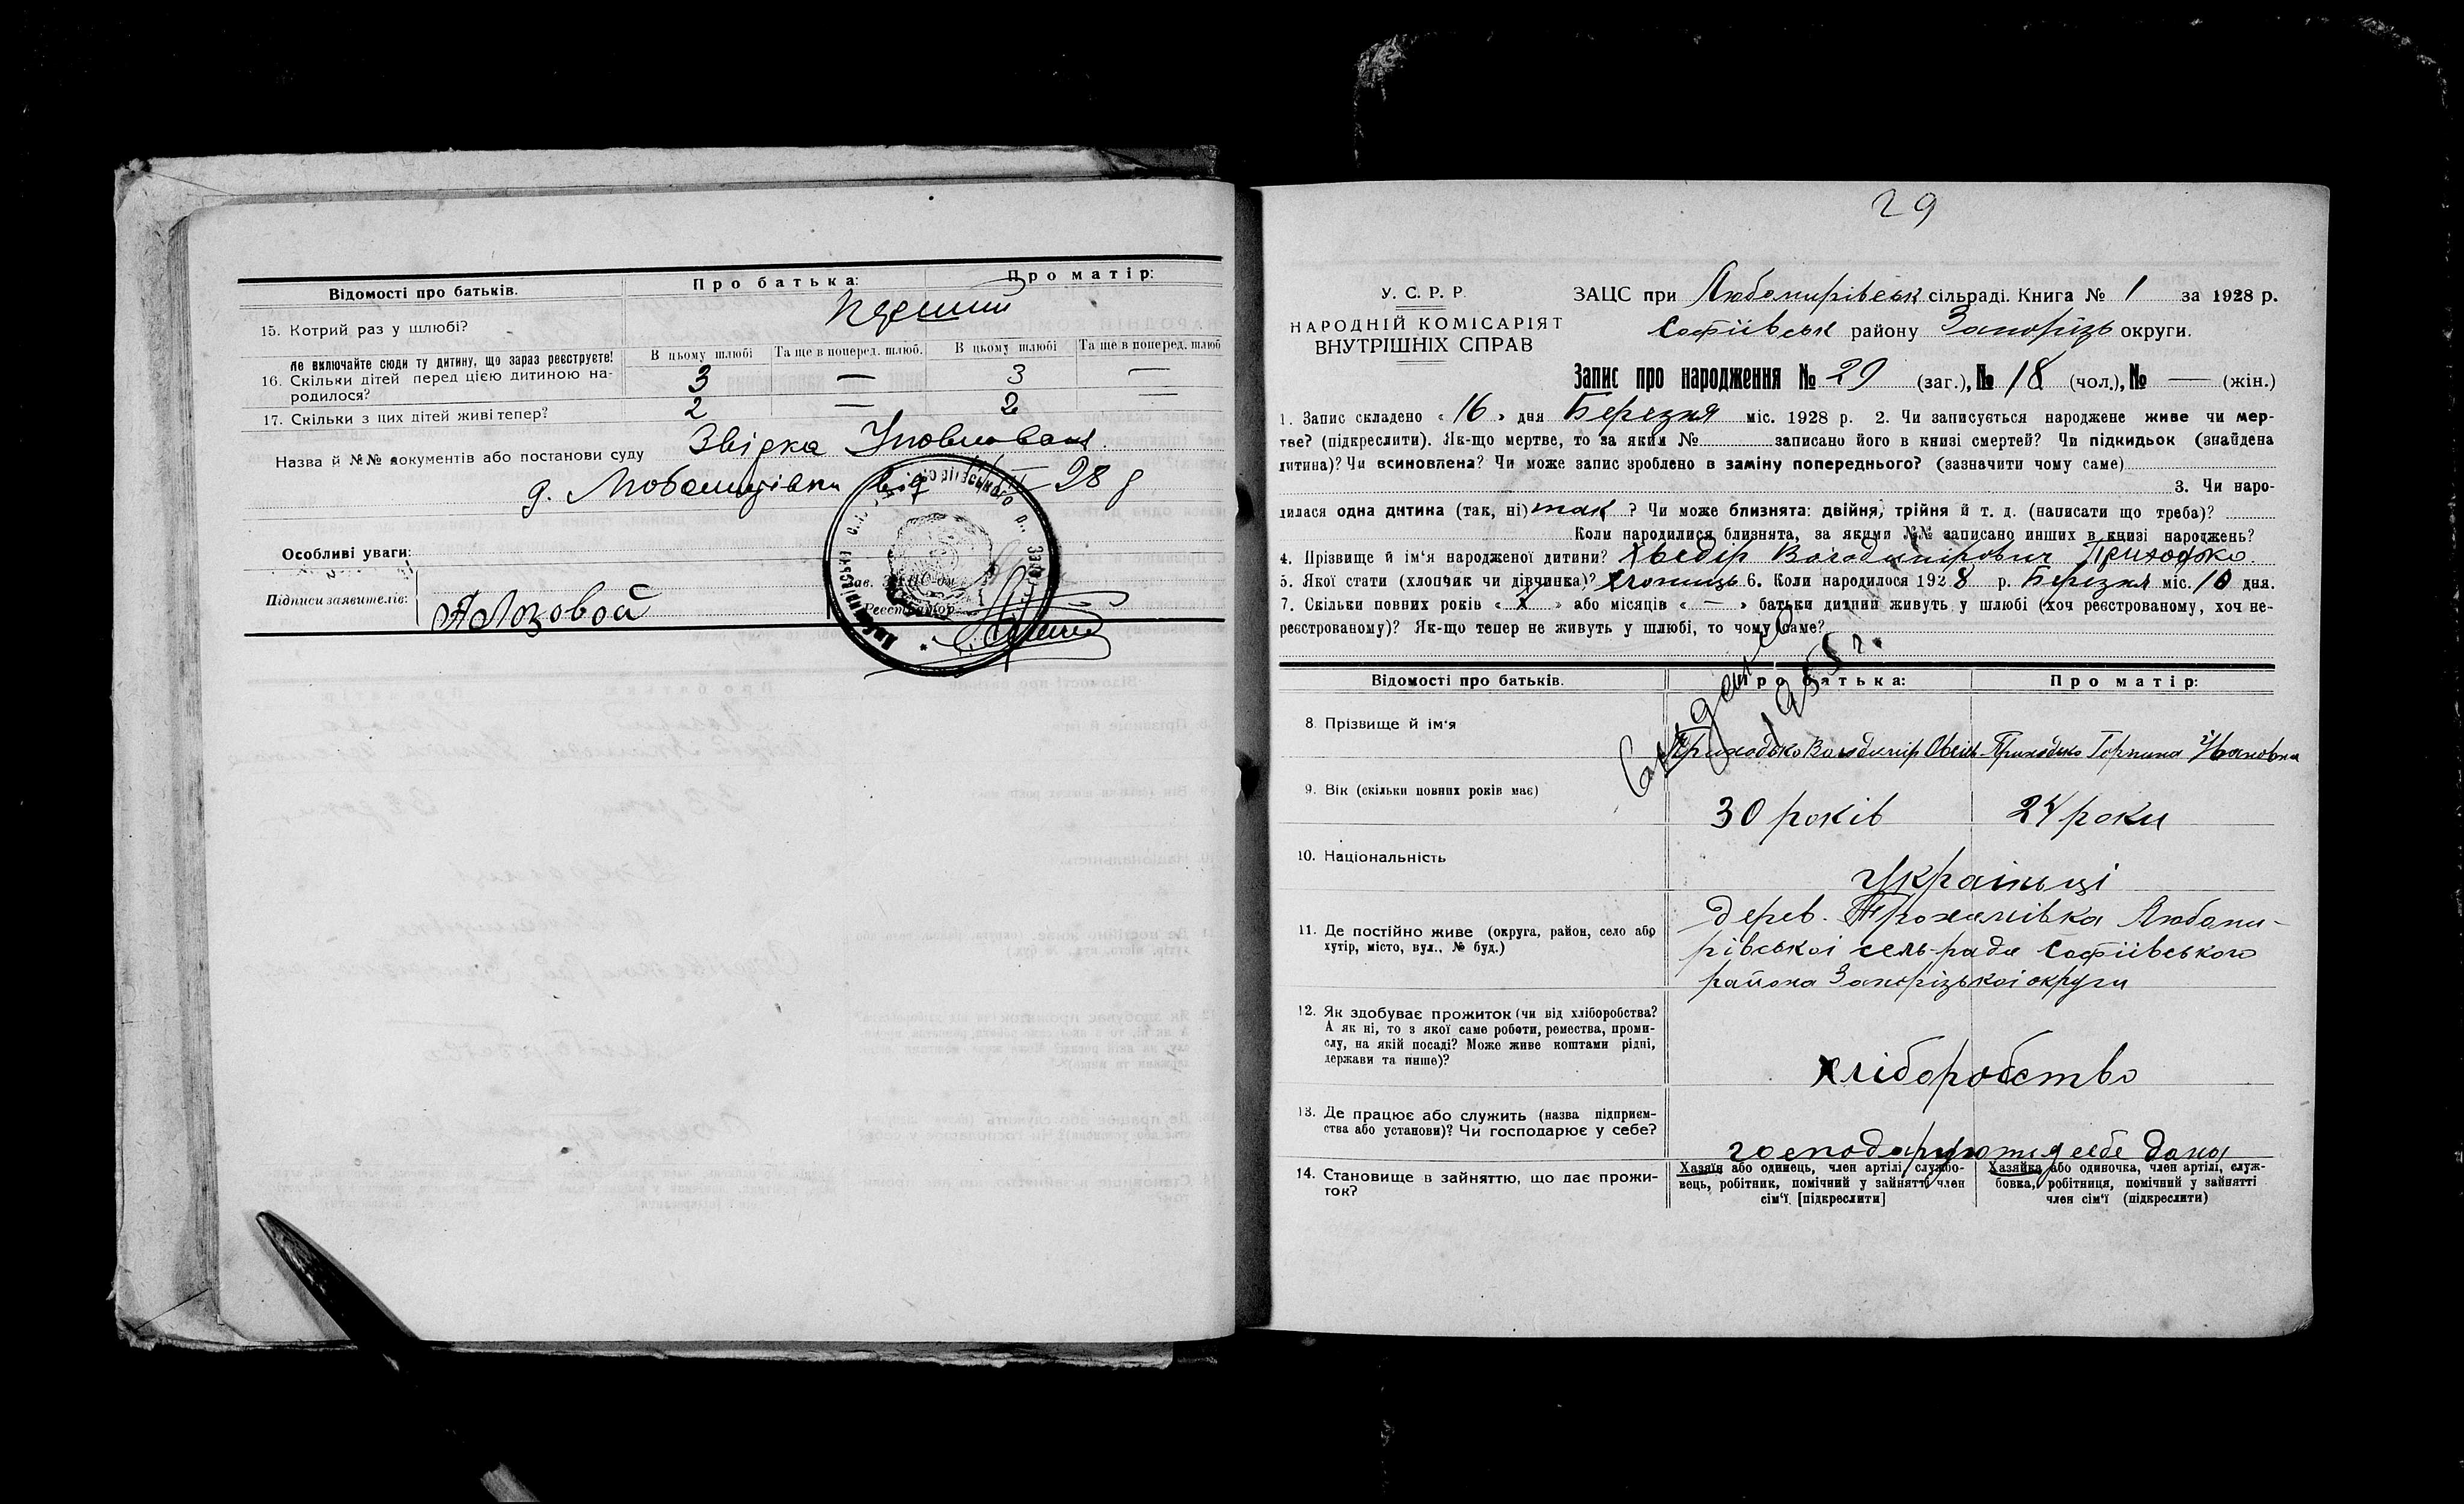 Відомості про батьків.
Про батька:
Про матір:
15. Котрий раз у шлюбі?
Перший
Не включайте сюди ту дитину, що зараз реєструєте!
16. Скільки дітей перед цією дитиною на-
родилося?
В цьому шлюбі
Та ще в поперед. шлюб.
В цьому шлюбі
Та ще в поперед. шлюб
3 — 3 —
17. Скільки з цих дітей живі тепер?
2 — 2 —
Назва й №№ документів або постанови суду
Звідка
д. Любомирівки від 28 р
Особливі уваги:
Підписи заявителів:
А Лозовой
Реєстратор
29
У. С. Р. Р.
НАРОДНІЙ КОМІСАРІЯТ
ВНУТРІШНІХ СПРАВ
ЗАЦС при Любомирівськ сільраді. Книга № 1 за 1928 р.
Софіївськ району Запоріз округи.
Запис про народження № 29 (заг.), № 18 (чол.), № — (жін.)
1. Запис складено « 16 » дня Березня міс. 1928 р. 2. Чи записується народжене живе чи мер-
тве? (підкреслити). Як-що мертве, то за яким № записано його в книзі смертей? Чи підкидьок (знайдена
дитина)? Чи всиновлена? Чи може запис зроблено в заміну попереднього? (зазначити чому саме)
3. Чи наро-
дилася одна дитина (так, ні) так ? Чи може близнята: двійня, трійня й т. д. (написати що треба)?
Коли народилися близнята, за якими №№ записано инших в книзі народжень?
4. Прізвище й ім'я народженої дитини? Хведір Володимірович Приходько
5. Якої стати (хлопчяк чи дівчинка)? Хлопиць 6. Коли народилося 1928 р. Березня міс. 10 дня.
7. Скільки повних років « X » або місяців « — » батьки дитини живуть у шлюбі (хоч реєстрованому, хоч не-
реєстрованому)? Як-що тепер не живуть у шлюбі, то чому саме?
Відомості про батьків.
Про батька:
Про матір:
8. Прізвище й ім'я
Приходько Володимір Овсій-
Приходько Горпина Ивановна
9. Вік (скільки повних років має)
30 років
24 роки
10. Національність
Українці
11. Де постійно живе (округа, район, село або
хутір, місто, вул., № буд.)
дерев. Трохимівка Любоми-
рівськоі сель-ради Софіівського
района Запорізькоі округи
12. Як здобуває прожиток (чи від хліборобства?
А як ні, то з якої саме роботи, ремества, проми-
слу, на якій посаді? Може живе коштами рідні,
держави та инше)?
Хліборобство
13. Де працює або служить (назва підприєм-
ства або установи)? Чи господарює у себе?
господарують у себе дома
14. Становище в зайняттю, що дає прожи-
ток?
Хазяїн або одинець, член артілі, службо-
вець, робітник, помічний у зайнятті член
сім'ї. [підкреслити]
Хазяйка або одиночка, член артілі, служ-
бовка, робітниця, помічний у зайнятті
член сім'ї (підкреслити)